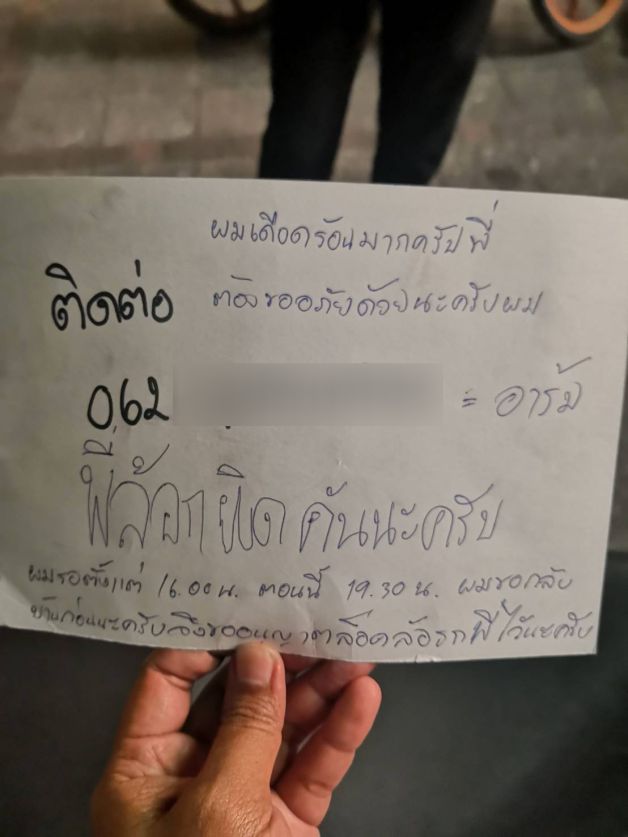 ผมเดือดร้อนมากครับพี่
ติดต่อ ต้องขออภัยด้วยนะครับผม
062 = อาร์ม
พี่ล้อกผิดคันนะครับ
ผมรอตั้งแต่ 16.00 น. ตอนนี้ 19.30 น. ผมขอกลับ
บ้านก่อนนะครับจึงขออนุญาตล็อคล้อรถพี่ไว้นะครับ